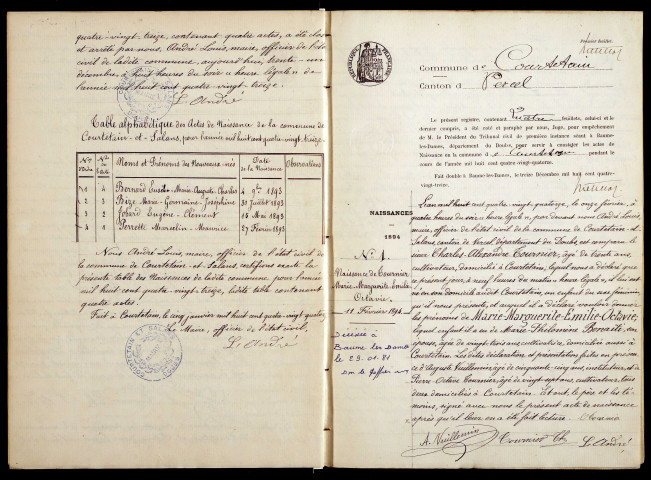 quatre-vingt-treize, contenant quatre actes, a été clos
et arrêté par nous, André Louis, maire, officier de l'état
civil de ladite commune, aujourd'hui, trente-un
décembre, à huit heures du soir « heure légale » de
l'année mil huit cent quatre-vingt-treize.
L. André
Table alphabétique des Actes de Naissance de la commune de
Courtetain-et-Salans, pour l'année mil huit cent quatre-vingt-treize
Nos d'Ordre Nos de l'acte Noms et Prénoms des Nouveaux-nés Date de la Naissance Observations
1 4 Marie-Auguste-Charles 4 9bre 1893
2 3 Bize Marie-Germaine-Joséphine 30 Juillet 1893
3 2 Jobard Eugène-Clément 15 Mai 1893
4 1 Perrette Marcelin-Maurice 27 Février 1893
Nous André Louis, maire, officier de l'état civil de
la commune de Courtetain-et-Salans, certifions exacte la
présente table des Naissances de ladite commune, pour l'année
mil huit cent quatre-vingt-treize, ladite table contenant
quatre actes.
Fait à Courtetain, le cinq janvier mil huit cent quatre-vingt-quatorze
Le Maire, officier de l'état civil,
L. André
COURTETAIN ET SALANS
RÉPUBLIQUE FRANÇAISE
Premier feuillet.
Commune de Courtetain
Canton de Vercel
Le présent registre, contenant quatre feuillets, celui-ci et le
dernier compris, a été coté et paraphé par nous, Juge, pour empêchement
de M. le Président du Tribunal civil de première instance séant à Baume-
les-Dames, département du Doubs, pour servir à constater les actes de
Naissance en la commune de Courtetain pendant le
cours de l'année mil huit cent quatre-vingt-quatorze.
Fait double à Baume-les-Dames, le trente Décembre mil huit cent quatre-
vingt-treize.
NAISSANCES
1894
N° 1
Naissance de Tournier
Marie-Marguerite-Emilie-
Octavie,
11 Février 1894
Décédée à
Baume les Dames
le 29.01.81
L'an mil huit cent quatre-vingt-quatorze, le onze février, à
quatre heures du soir « heure légale », par devant nous André Louis,
maire, officier de l'état civil de la commune de Courtetain-et-
Salans, canton de Vercel, département du Doubs, est comparu le
sieur Charles-Alexandre Tournier, âgé de trente ans
cultivateur, domicilié à Courtetain, lequel nous a déclaré que
ce présent jour, à neuf heures du matin « heure légale », il lui est
né en son domicile audit Courtetain, un enfant du sexe féminin
qu'il nous présente, et auquel il a déclaré vouloir donner
les prénoms de Marie-Marguerite-Emilie-Octavie,
lequel enfant il a eu de Marie-Philomène Bonnaité, son
épouse, âgée de vingt-trois ans, cultivatrice, domiciliée aussi à
Courtetain. Lesdites déclaration et présentation faites en présence
d'Auguste Vuillemin, âgé de cinquante-cinq ans, instituteur, et de
Pierre-Octave Tournier, âgé de vingt-sept ans, cultivateur, tous
deux domiciliés à Courtetain. Et ont, le père et les té-
moins, signé avec nous le présent acte de naissance
après qu'il leur en a été fait lecture. O. Tournier
A. Vuillemin Tournier Ch. L. André